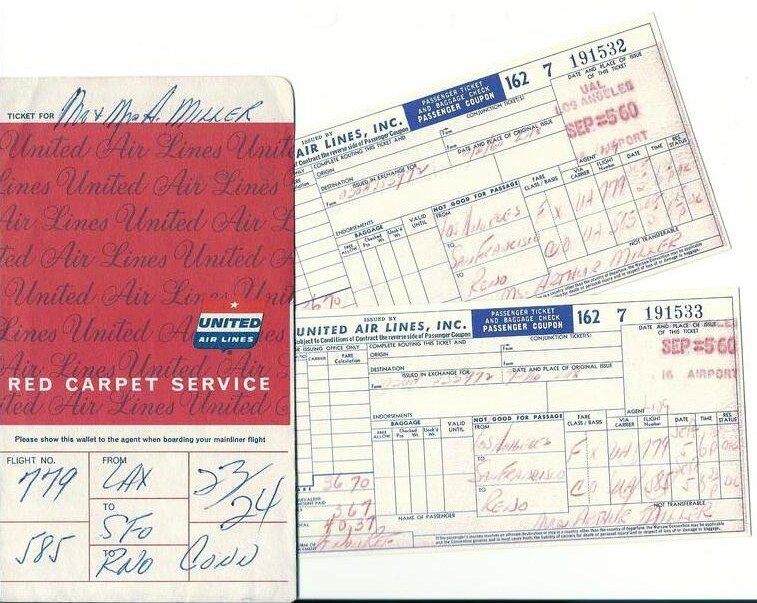 TICKET FOR Mr & Mrs A. MILLER
United Air Lines
UNITED
AIR LINES
RED CARPET SERVICE
Please show this wallet to the agent when boarding your mainliner flight
FLIGHT NO.
FROM
779
LAX
23/24
TO
SFO
585
TO
RNO
CONN
ISSUED BY
AIR LINES, INC.
PASSENGER TICKET
AND BAGGAGE CHECK
PASSENGER COUPON
162 7 191532
DATE AND PLACE OF ISSUE
OF THIS TICKET
UAL
LOS ANGELES
SEP =5 60
AIRPORT
of Contract the reverse side of Passenger Coupon
COMPLETE ROUTING THIS TICKET AND
CONJUNCTION TICKET(S)
ORIGIN
From
DATE AND PLACE OF ORIGINAL ISSUE
DESTINATION
ISSUED IN EXCHANGE FOR
From
ENDORSEMENTS
BAGGAGE
FREE ALLOW
Checked
Pcs Wt.
Unck'd
Wt.
VALID
UNTIL
NOT GOOD FOR PASSAGE
FROM
FARE
CLASS / BASIS
VIA
CARRIER
AGENT
FLIGHT
Number
DATE
TIME
RES.
STATUS
LOS ANGELES
F X UA 779
TO
SAN FRANCISCO
UA
TO
RENO
NOT TRANSFERABLE
ARTHUR MILLER
36 70
ISSUED BY
UNITED AIR LINES, INC.
PASSENGER TICKET
AND BAGGAGE CHECK
PASSENGER COUPON
162 7 191533
Subject to Conditions of Contract the reverse side of Passenger Coupon
CONJUNCTION TICKET(S)
DATE AND PLACE OF ISSUE
OF THIS TICKET
SEP =5 60
16 AIRPORT
ISSUING OFFICE ONLY
COMPLETE ROUTING THIS TICKET AND
ORIGIN
FARE
Calculation
DESTINATION
ISSUED IN EXCHANGE FOR
DATE AND PLACE OF ORIGINAL ISSUE
From
ENDORSEMENTS
BAGGAGE
FREE ALLOW
Checked
Pcs Wt.
Unck'd
Wt.
VALID
UNTIL
NOT GOOD FOR PASSAGE
FROM
FARE
CLASS / BASIS
VIA
CARRIER
AGENT
FLIGHT
Number
DATE
TIME
RES.
STATUS
LOS ANGELES
F X UA 779
TO
SAN FRANCISCO
UA 585
TO
RENO
36 70
3 67
40.37
NAME OF PASSENGER
NOT TRANSFERABLE
ARTHUR MILLER